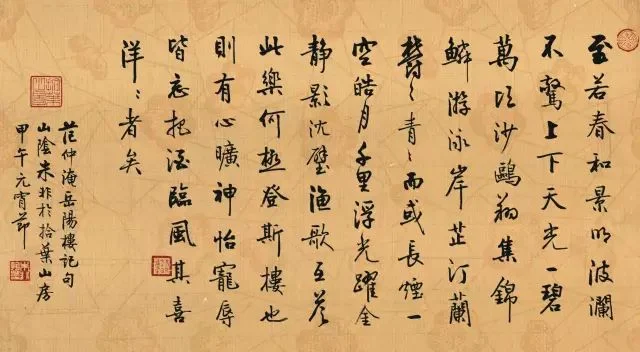 至若春和景明波瀾
不驚上下天光一碧
萬頃沙鷗翔集錦
鱗游泳岸芷汀蘭
欝〻青〻而或長煙一
空皓月千里浮光躍金
靜影沈璧漁歌互答
此樂何極登斯樓也
則有心曠神怡寵辱
皆忘把酒臨風其喜
洋〻者矣
范仲淹岳陽樓記句
山陰朱非於拾葉山房
甲午元宵節